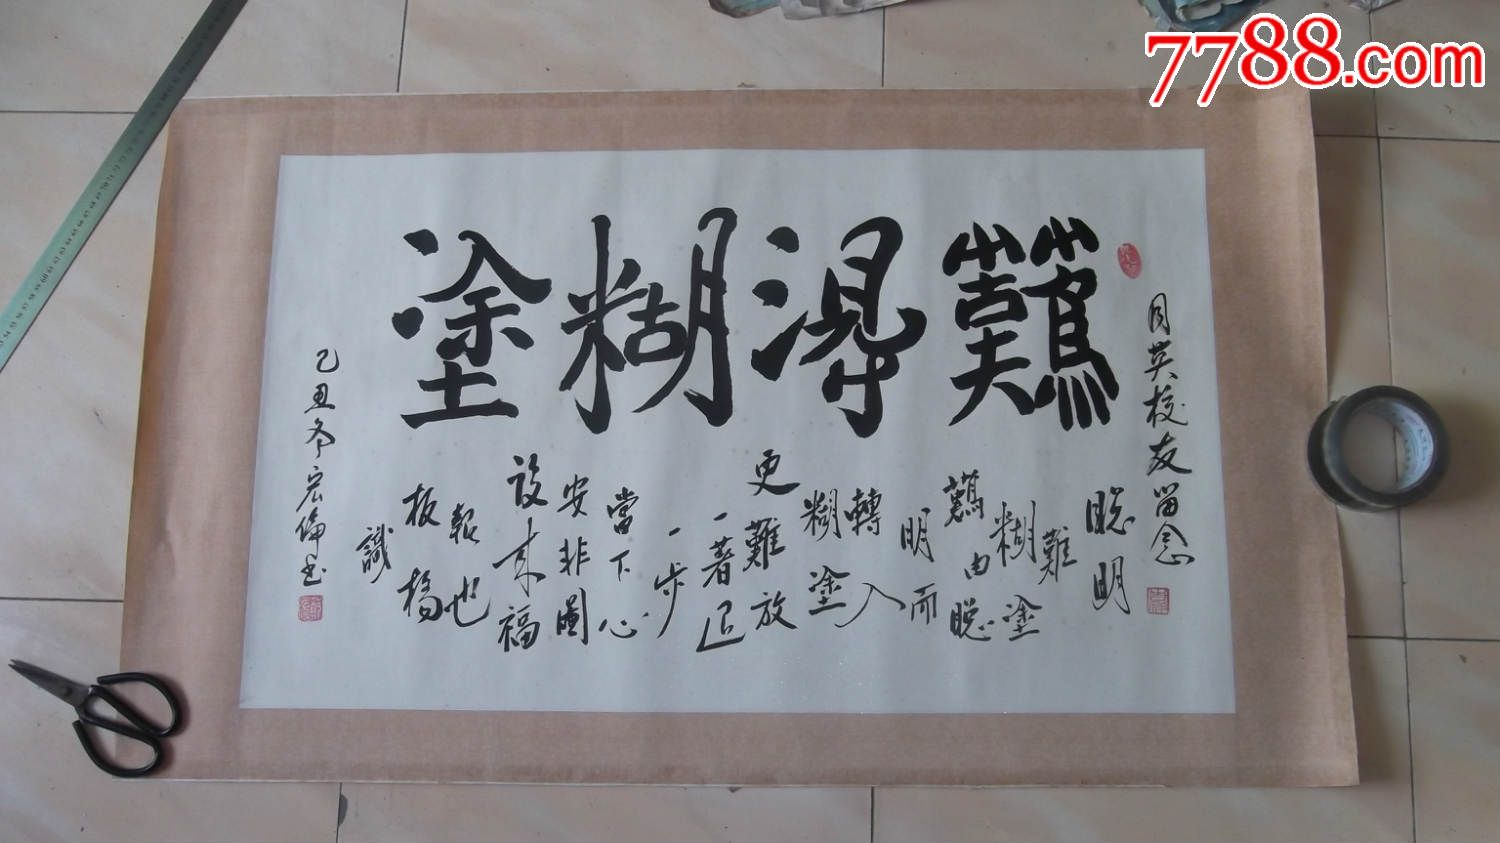 難得糊塗
月英校友留念
聰明
難
糊塗
難由聰
明而
轉入
糊塗
更難放
一著退
一步
當下心
安非圖
後來福
報也
板橋
識
己丑冬宏倫书
7788.com